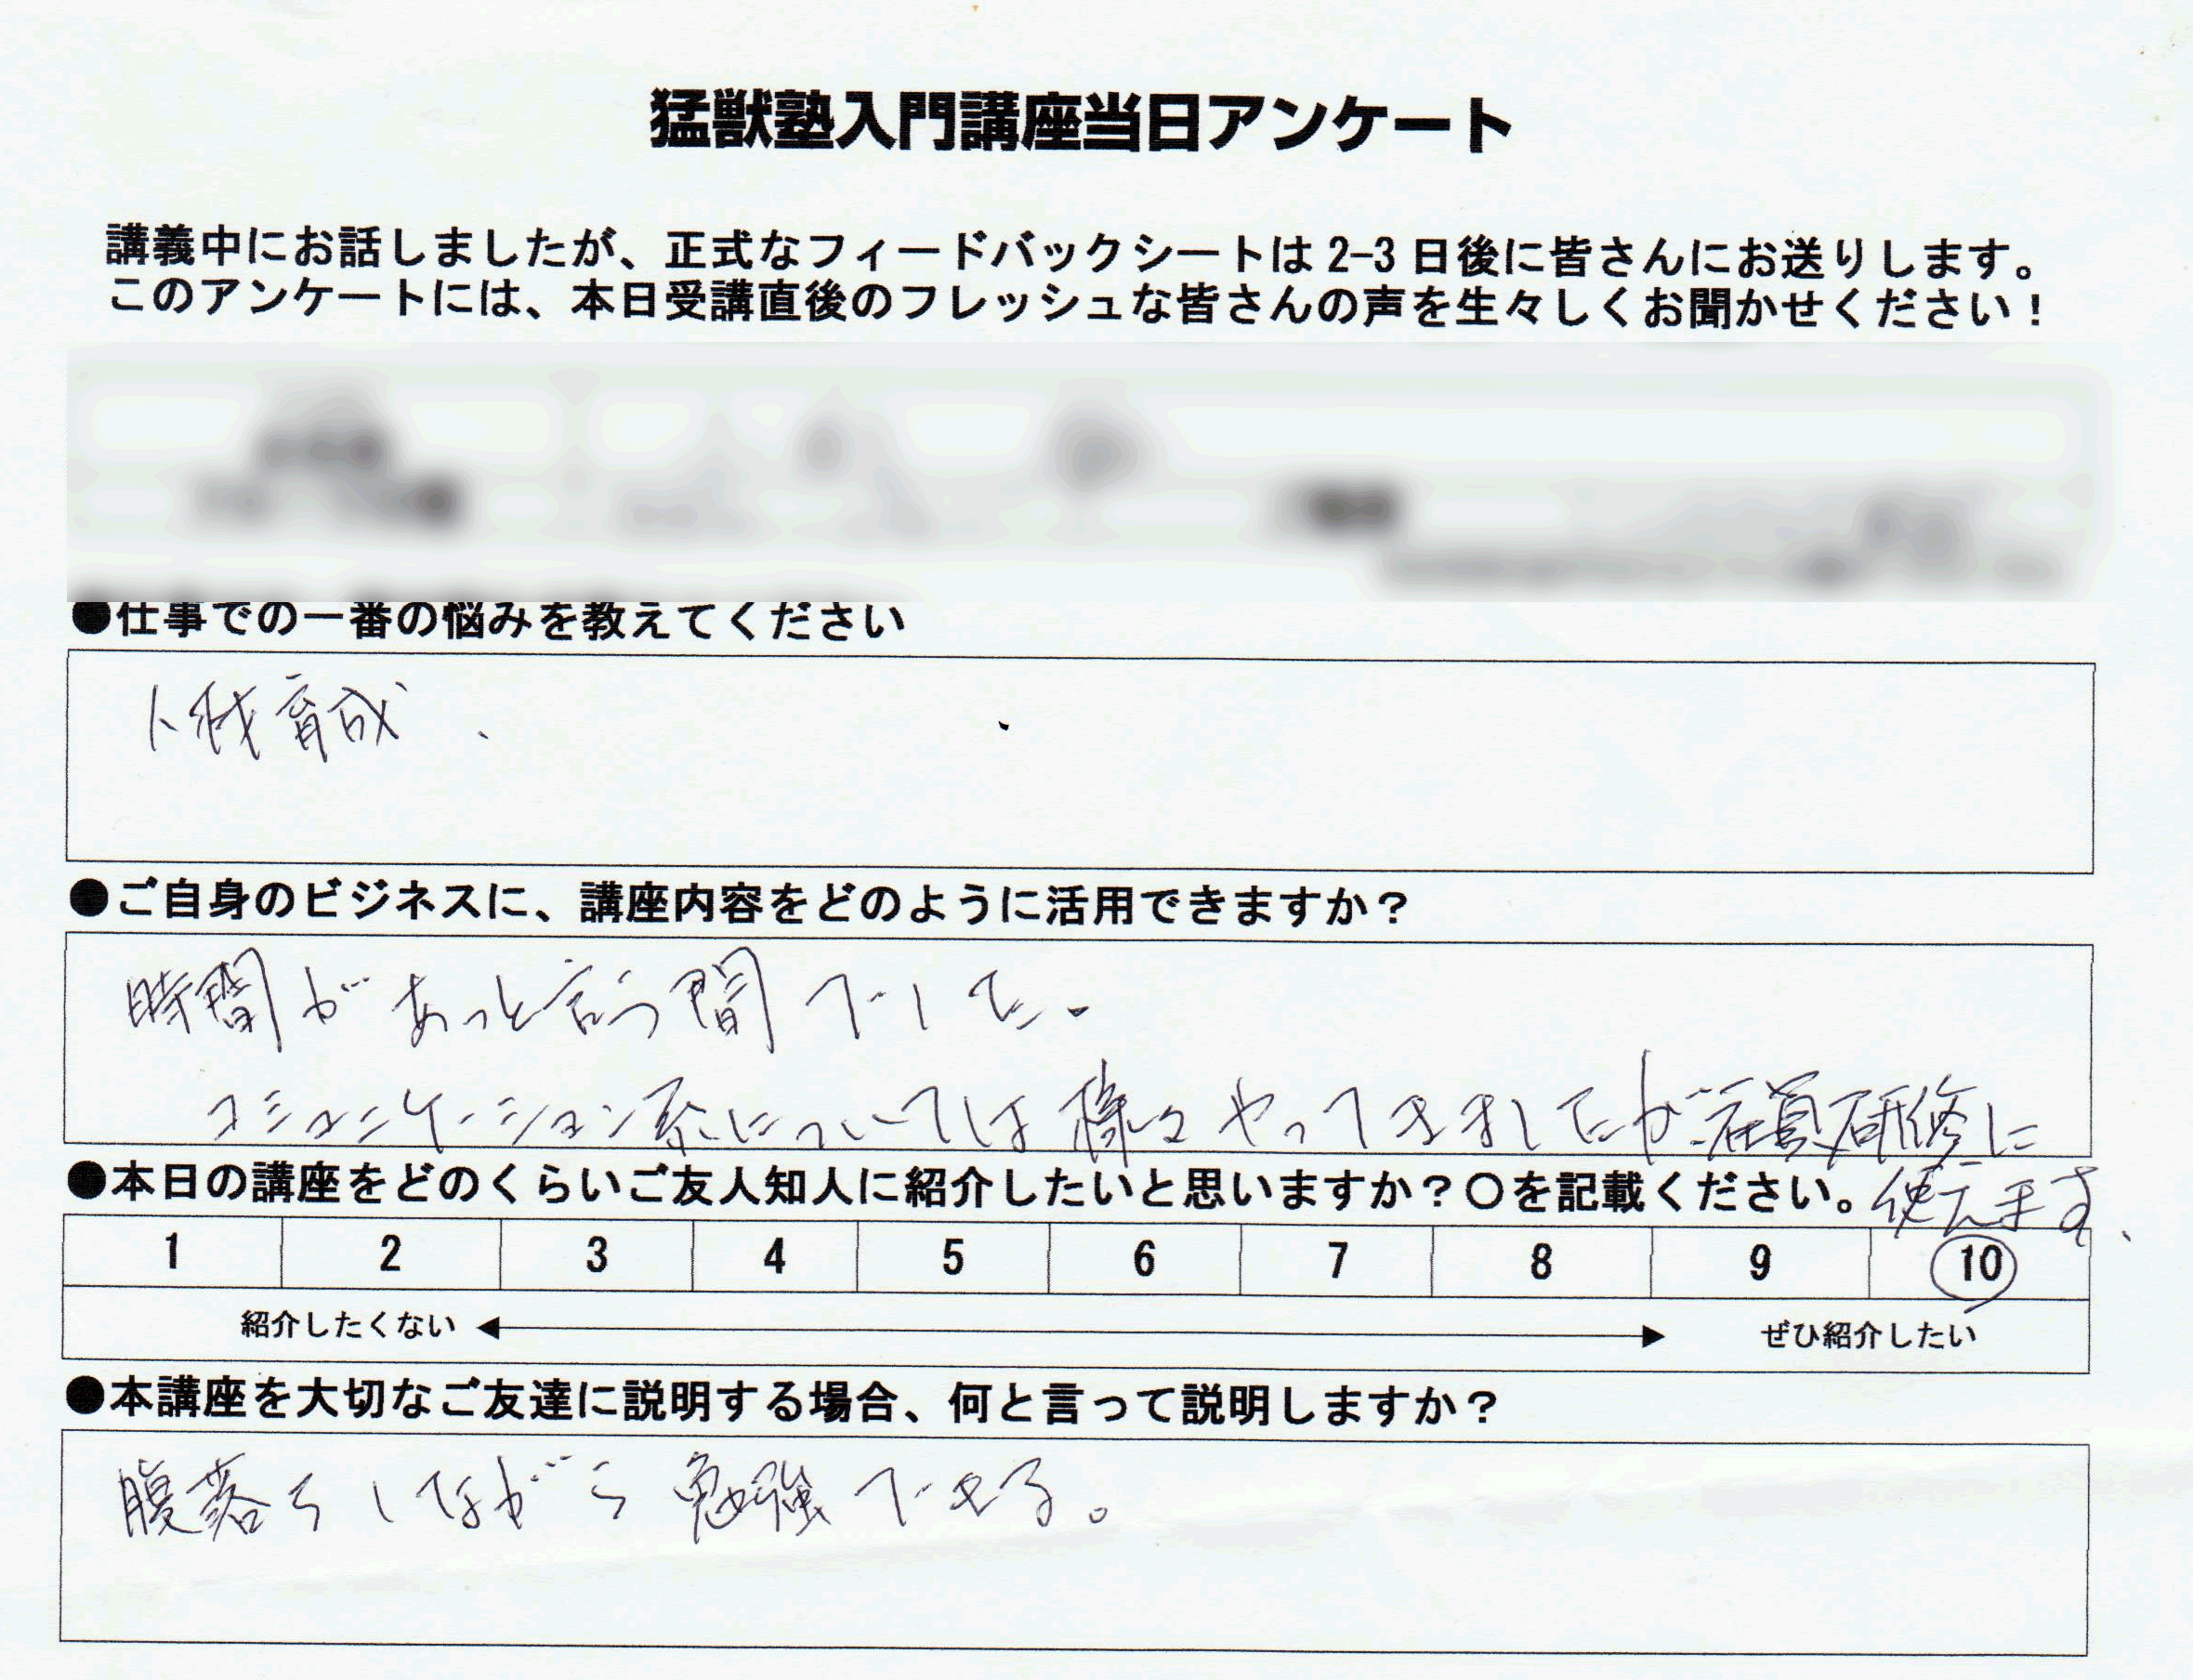 猛獣塾入門講座当日アンケート
講義中にお話しましたが、正式なフィードバックシートは2-3日後に皆さんにお送りします。
このアンケートには、本日受講直後のフレッシュな皆さんの声を生々しくお聞かせください!
●仕事での一番の悩みを教えてください
人材育成、
●ご自身のビジネスに、講座内容をどのように活用できますか?
時間があっと言う間でした。
コミュニケーション系については様々やってきましたが店員研修に
使えます、
●本日の講座をどのくらいご友人知人に紹介したいと思いますか?〇を記載ください。
1 2 3 4 5 6 7 8 9 10
紹介したくない ぜひ紹介したい
●本講座を大切なご友達に説明する場合、何と言って説明しますか?
腹落ちしながら勉強できる。